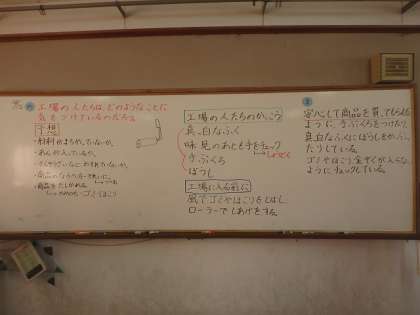 工場の人たちは、どのようなことに
気をつけているのだろう。
予想
・材料がまちがっていないか。
・あんが入っているか。
・商品をたしかめる。
ゴミやほこり
工場の人たちのかっこう
真っ白なふく
味見のあとも手をチェック
手ぶくろ
ぼうし
工場に入る前に
風でゴミやほこりをとばし
ローラーでしあげをする。
安心して商品を買ってもらえる
ように、手ぶくろをつけたり
真白なふくにぼうしをかぶっ
たりしている。
ゴミやほこり金ぞくが入らない
ようにチェックしている。